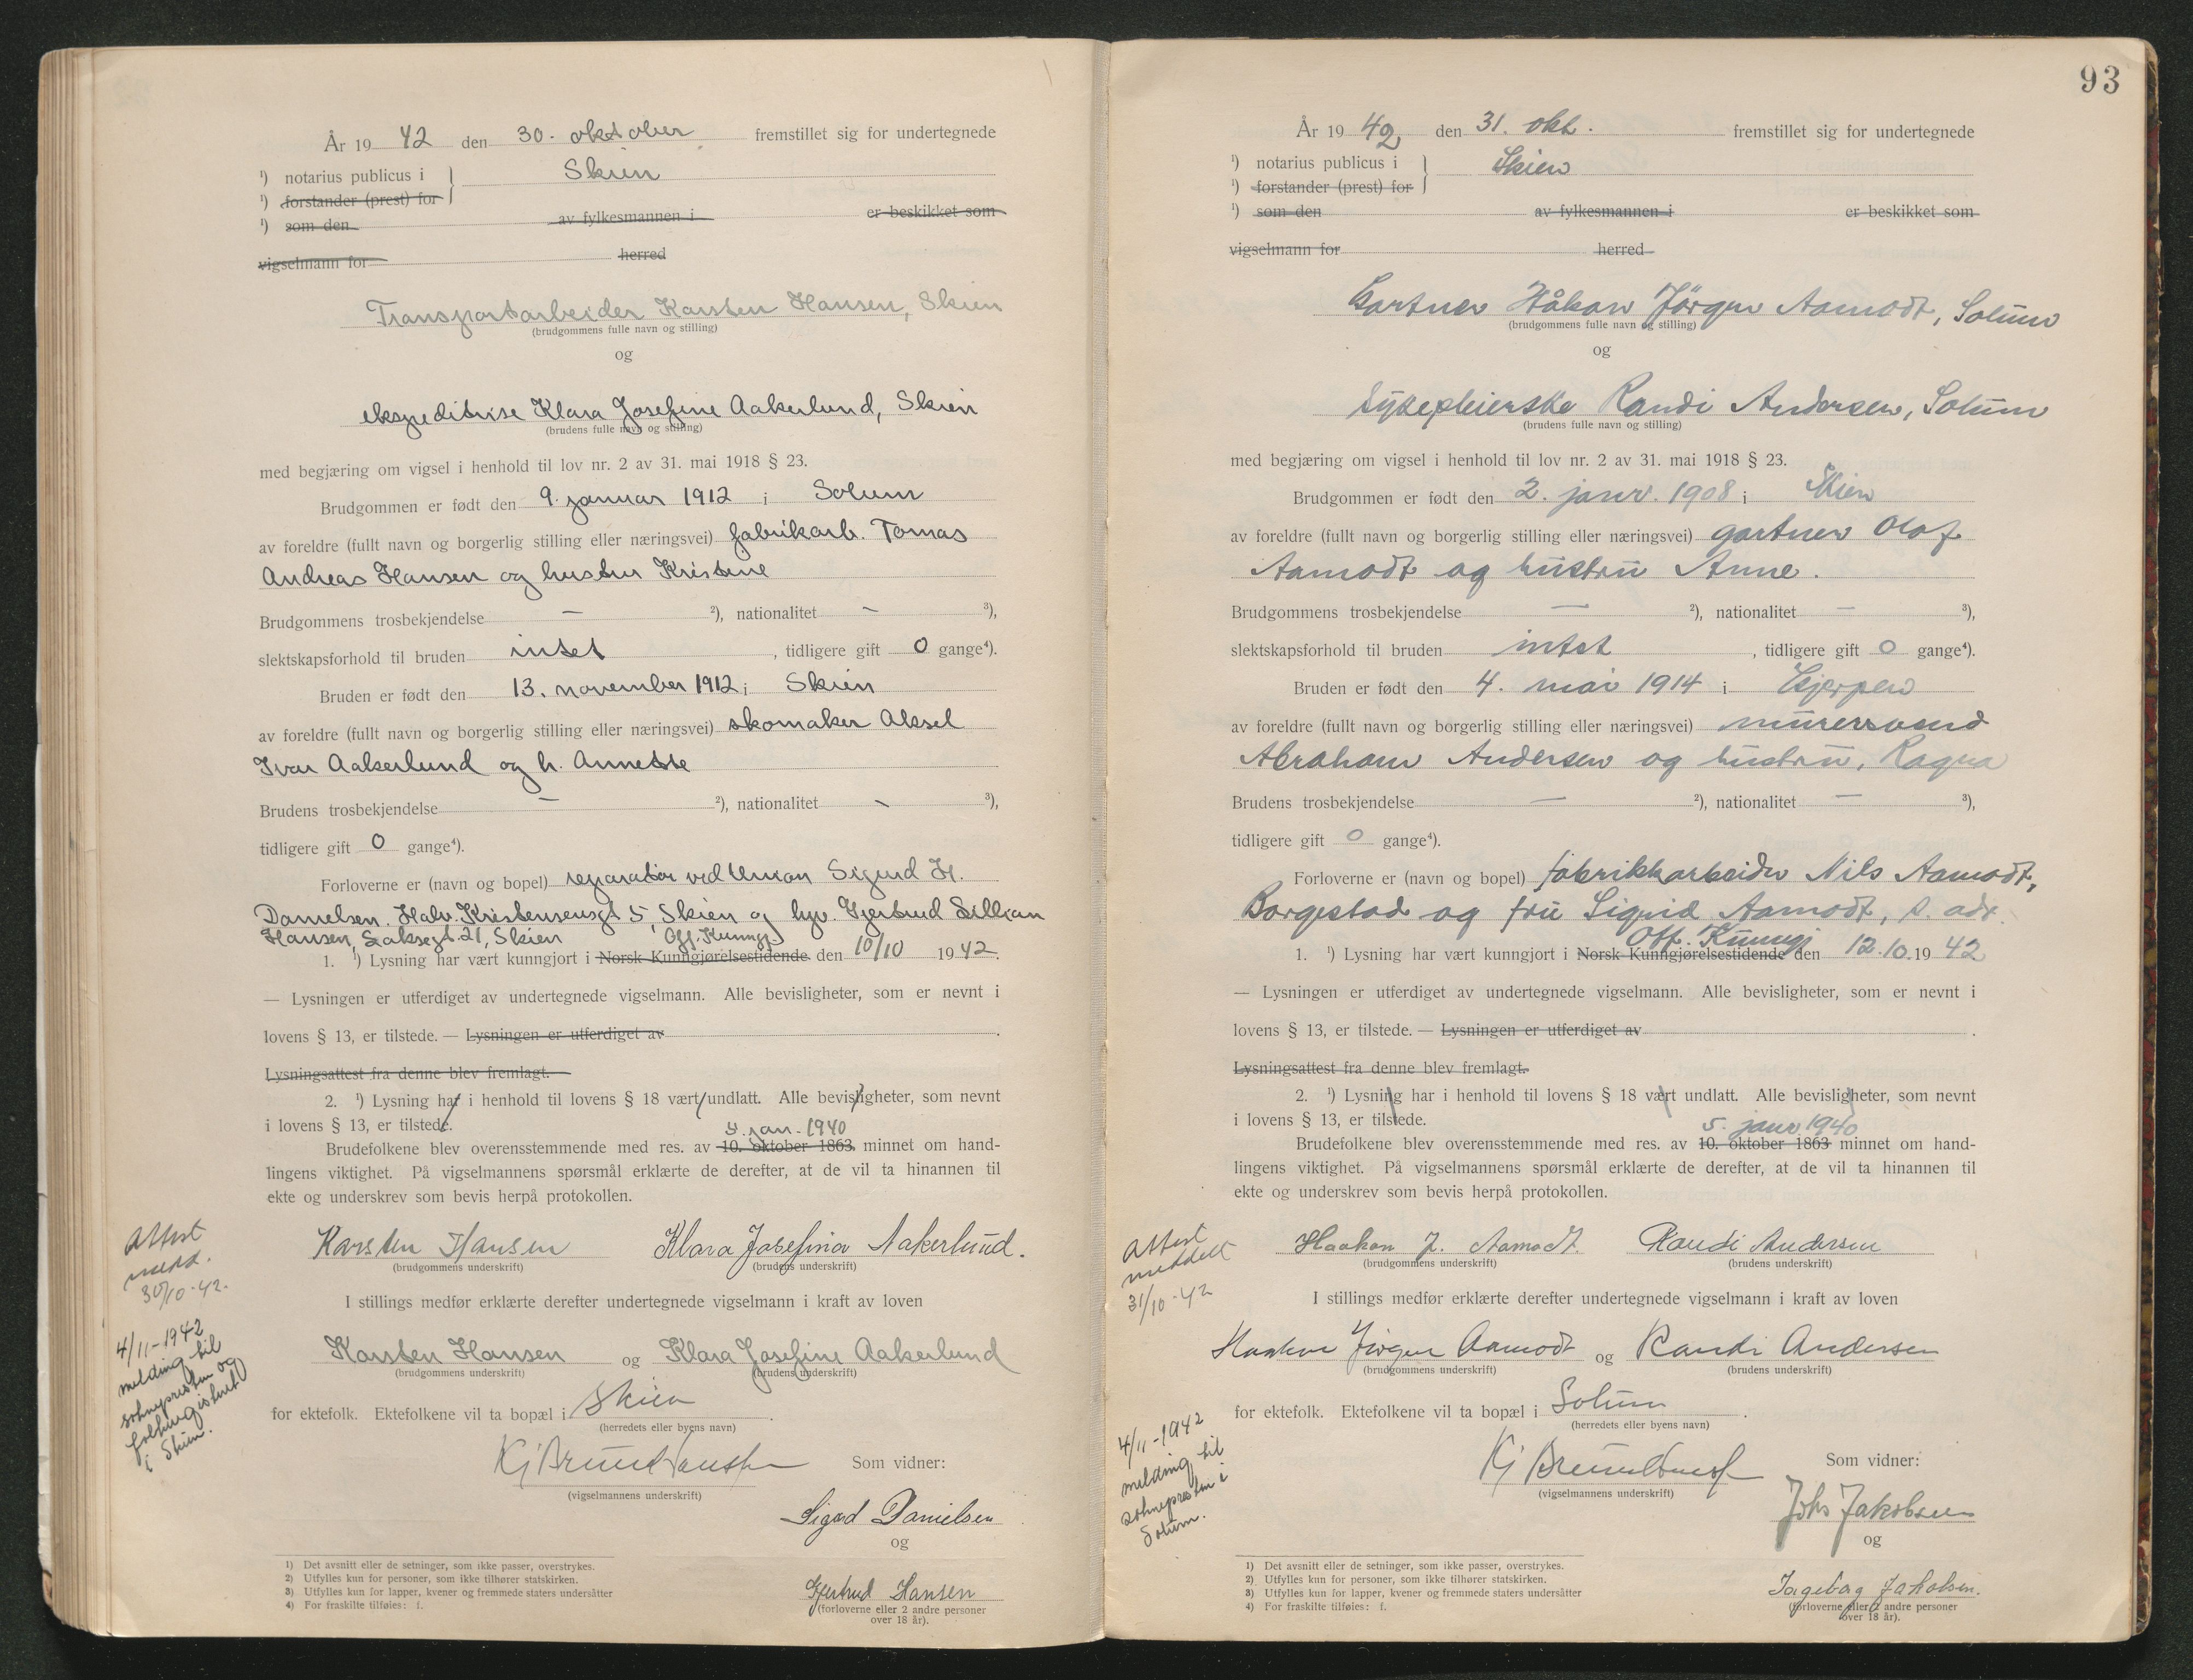 År 1942 den 30. oktober fremstillet sig for undertegnede
¹) notarius publicus i } Skien
¹) forstander (prest) for
¹) som den av fylkesmannen i er beskikket som
vigselmann for herred
Transportarbeider Karsten Hansen, Skien
(brudgommens fulle navn og stilling)
og
ekspeditrise Klara Josefine Aakerlund, Skien
(brudens fulle navn og stilling)
med begjæring om vigsel i henhold til lov nr. 2 av 31. mai 1918 § 23.
Brudgommen er født den 9. januar 1912 i Solum
av foreldre (fullt navn og borgerlig stilling eller næringsvei) fabrikarb. Tomas
Andreas Hansen og hustru Kristine
Brudgommens trosbekjendelse — ²), nationalitet — ³),
slektskapsforhold til bruden intet, tidligere gift 0 gange⁴).
Bruden er født den 13. november 1912 i Skien
av foreldre (fullt navn og borgerlig stilling eller næringsvei) skomaker Aksel
Ivar Aakerlund og h. Annette
Brudens trosbekjendelse — ²), nationalitet — ³),
tidligere gift 0 gange⁴).
Forloverne er (navn og bopel) reparatør ved Union Sigurd H.
Danielsen, Halv. Kristensensgt 5, Skien og hpv. Gjertrud Lillian
Hansen, Saksegt. 21, Skien Off. Kunngj.
1. ¹) Lysning har vært kunngjort i Norsk Kunngjørelsestidende den 10/10 1942.
— Lysningen er utferdiget av undertegnede vigselmann. Alle bevisligheter, som er nevnt i
lovens § 13, er tilstede. — Lysningen er utferdiget av .
Lysningsattest fra denne blev fremlagt.
2. ¹) Lysning har i henhold til lovens § 18 vært undlatt. Alle bevisligheter, som nevnt
i lovens § 13, er tilstede. 5. jan. 1940
Brudefolkene blev overensstemmende med res. av 10. oktober 1863 minnet om hand-
lingens viktighet. På vigselmannens spørsmål erklærte de derefter, at de vil ta hinannen til
ekte og underskrev som bevis herpå protokollen.
Attest
medd.
30/10-42.
Karsten Hansen Klara Josefine Aakerlund.
(brudgommens underskrift) (brudens underskrift)
I stillings medfør erklærte derefter undertegnede vigselmann i kraft av loven
4/11-1942
melding til
soknepresten og
folkeregisteret
i Skien.
Karsten Hansen og Klara Josefine Aakerlund
(brudgommens underskrift) (brudens underskrift)
for ektefolk. Ektefolkene vil ta bopæl i Skien.
(herredets eller byens navn)
Som vidner:
(vigselmannens underskrift)
Sigurd Danielsen
og
Gjertrud Hansen
(forloverne eller 2 andre personer
over 18 år).
1) Det avsnitt eller de setninger, som ikke passer, overstrykes.
2) Utfylles kun for personer, som ikke tilhører statskirken.
3) Utfylles kun for lapper, kvener og fremmede staters undersåtter
4) For fraskilte tilføies: f.
93
År 1942 den 31. okt. fremstillet sig for undertegnede
¹) notarius publicus i } Skien
¹) forstander (prest) for
¹) som den av fylkesmannen i er beskikket som
vigselmann for herred
Gartner Håkon Jörgen Aamodt, Solum
(brudgommens fulle navn og stilling)
og
Sykepleierske Randi Andersen, Solum
(brudens fulle navn og stilling)
med begjæring om vigsel i henhold til lov nr. 2 av 31. mai 1918 § 23.
Brudgommen er født den 2. janr. 1908 i Skien
av foreldre (fullt navn og borgerlig stilling eller næringsvei) gartner Olaf
Aamodt og hustru Anne.
Brudgommens trosbekjendelse — ²), nationalitet — ³),
slektskapsforhold til bruden intet, tidligere gift 0 gange⁴).
Bruden er født den 4. mai 1914 i Gjerpen
av foreldre (fullt navn og borgerlig stilling eller næringsvei) murersvend
Abraham Andersen og hustru, Ragna
Brudens trosbekjendelse — ²), nationalitet — ³),
tidligere gift 0 gange⁴).
Forloverne er (navn og bopel) fabrikkarbeider Nils Aamodt,
Borgestad og fru Sigrid Aamodt, s. adr.
Off. Kunngj
1. ¹) Lysning har vært kunngjort i Norsk Kunngjørelsestidende den 12.10.1942
— Lysningen er utferdiget av undertegnede vigselmann. Alle bevisligheter, som er nevnt i
lovens § 13, er tilstede. — Lysningen er utferdiget av .
Lysningsattest fra denne blev fremlagt.
2. ¹) Lysning har i henhold til lovens § 18 vært undlatt. Alle bevisligheter, som nevnt
i lovens § 13, er tilstede. 5. janr 1940
Brudefolkene blev overensstemmende med res. av 10. oktober 1863 minnet om hand-
lingens viktighet. På vigselmannens spørsmål erklærte de derefter, at de vil ta hinannen til
ekte og underskrev som bevis herpå protokollen.
Attest
meddelt
31/10-42
Haakon J. Aamodt Randi Andersen
(brudgommens underskrift) (brudens underskrift)
I stillings medfør erklærte derefter undertegnede vigselmann i kraft av loven
Haakon Jörgen Aamodt og Randi Andersen
(brudgommens underskrift) (brudens underskrift)
for ektefolk. Ektefolkene vil ta bopæl i Solum.
(herredets eller byens navn)
4/11-1942
melding til
soknepresten i
Solum.
Som vidner:
(vigselmannens underskrift)
Johs Jakobsen
og
Ingeborg Jakobsen.
(forloverne eller 2 andre personer
over 18 år).
1) Det avsnitt eller de setninger, som ikke passer, overstrykes.
2) Utfylles kun for personer, som ikke tilhører statskirken.
3) Utfylles kun for lapper, kvener og fremmede staters undersåtter
4) For fraskilte tilføies: f.